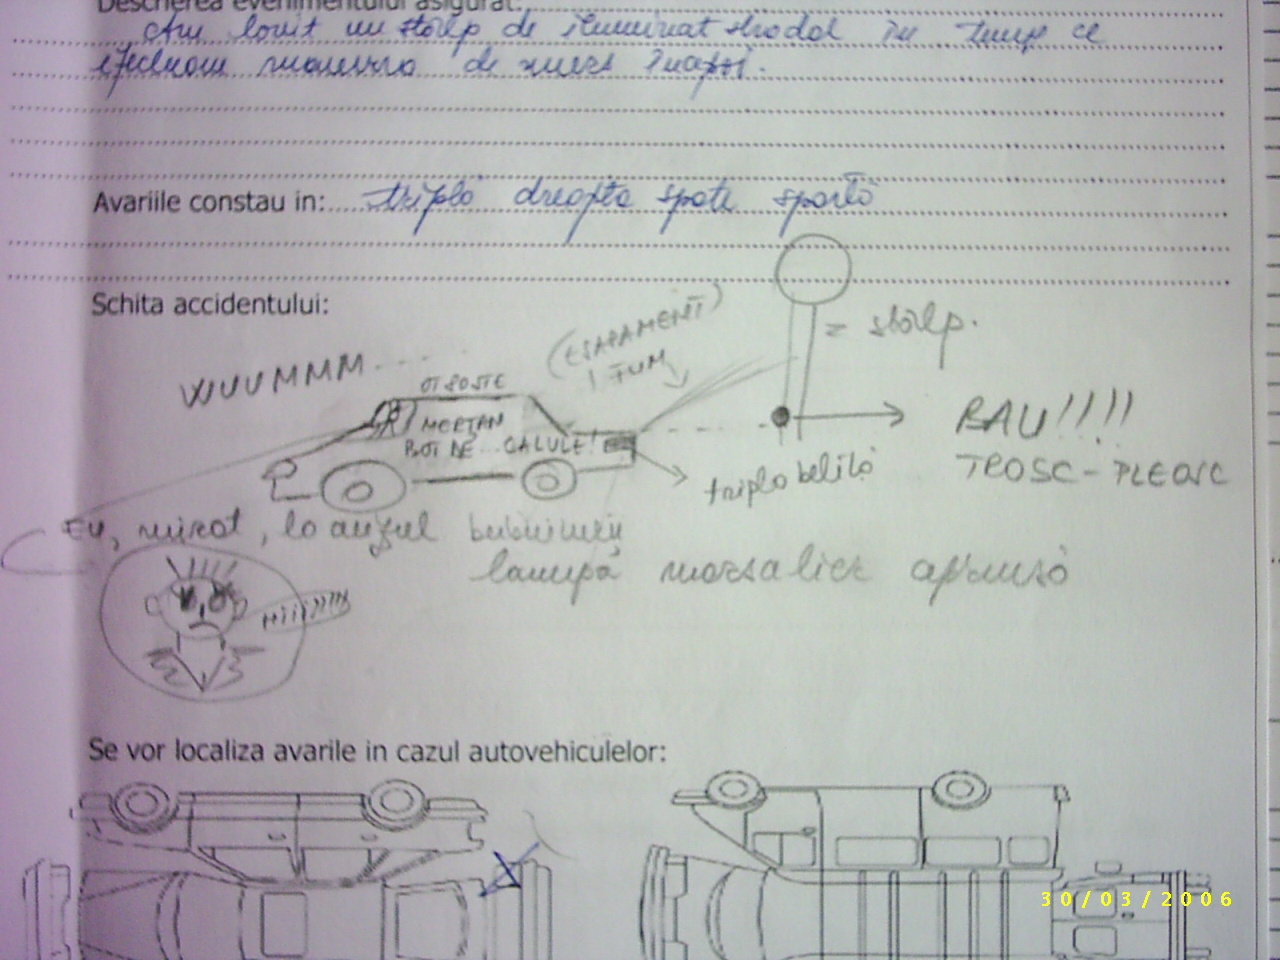 Descrierea evenimentului asigurat:
Am lovit un stâlp de iluminat stradal în timp ce
efectuam manevra de mers înapoi.
Avariile constau in: triplă dreapta spate spartă
Schita accidentului:
WUUMMM...
(ESAPAMENT)
! FUM
= stâlp.
MERTAN
BOT DE ... CALULE!
BAU!!!!
TROSC-PLEOSC
tripla belită
Eu, mirat, la auzul bubuiturii
lampă marsalier aprinsă
Se vor localiza avarile in cazul autovehiculelor:
30/03/2006